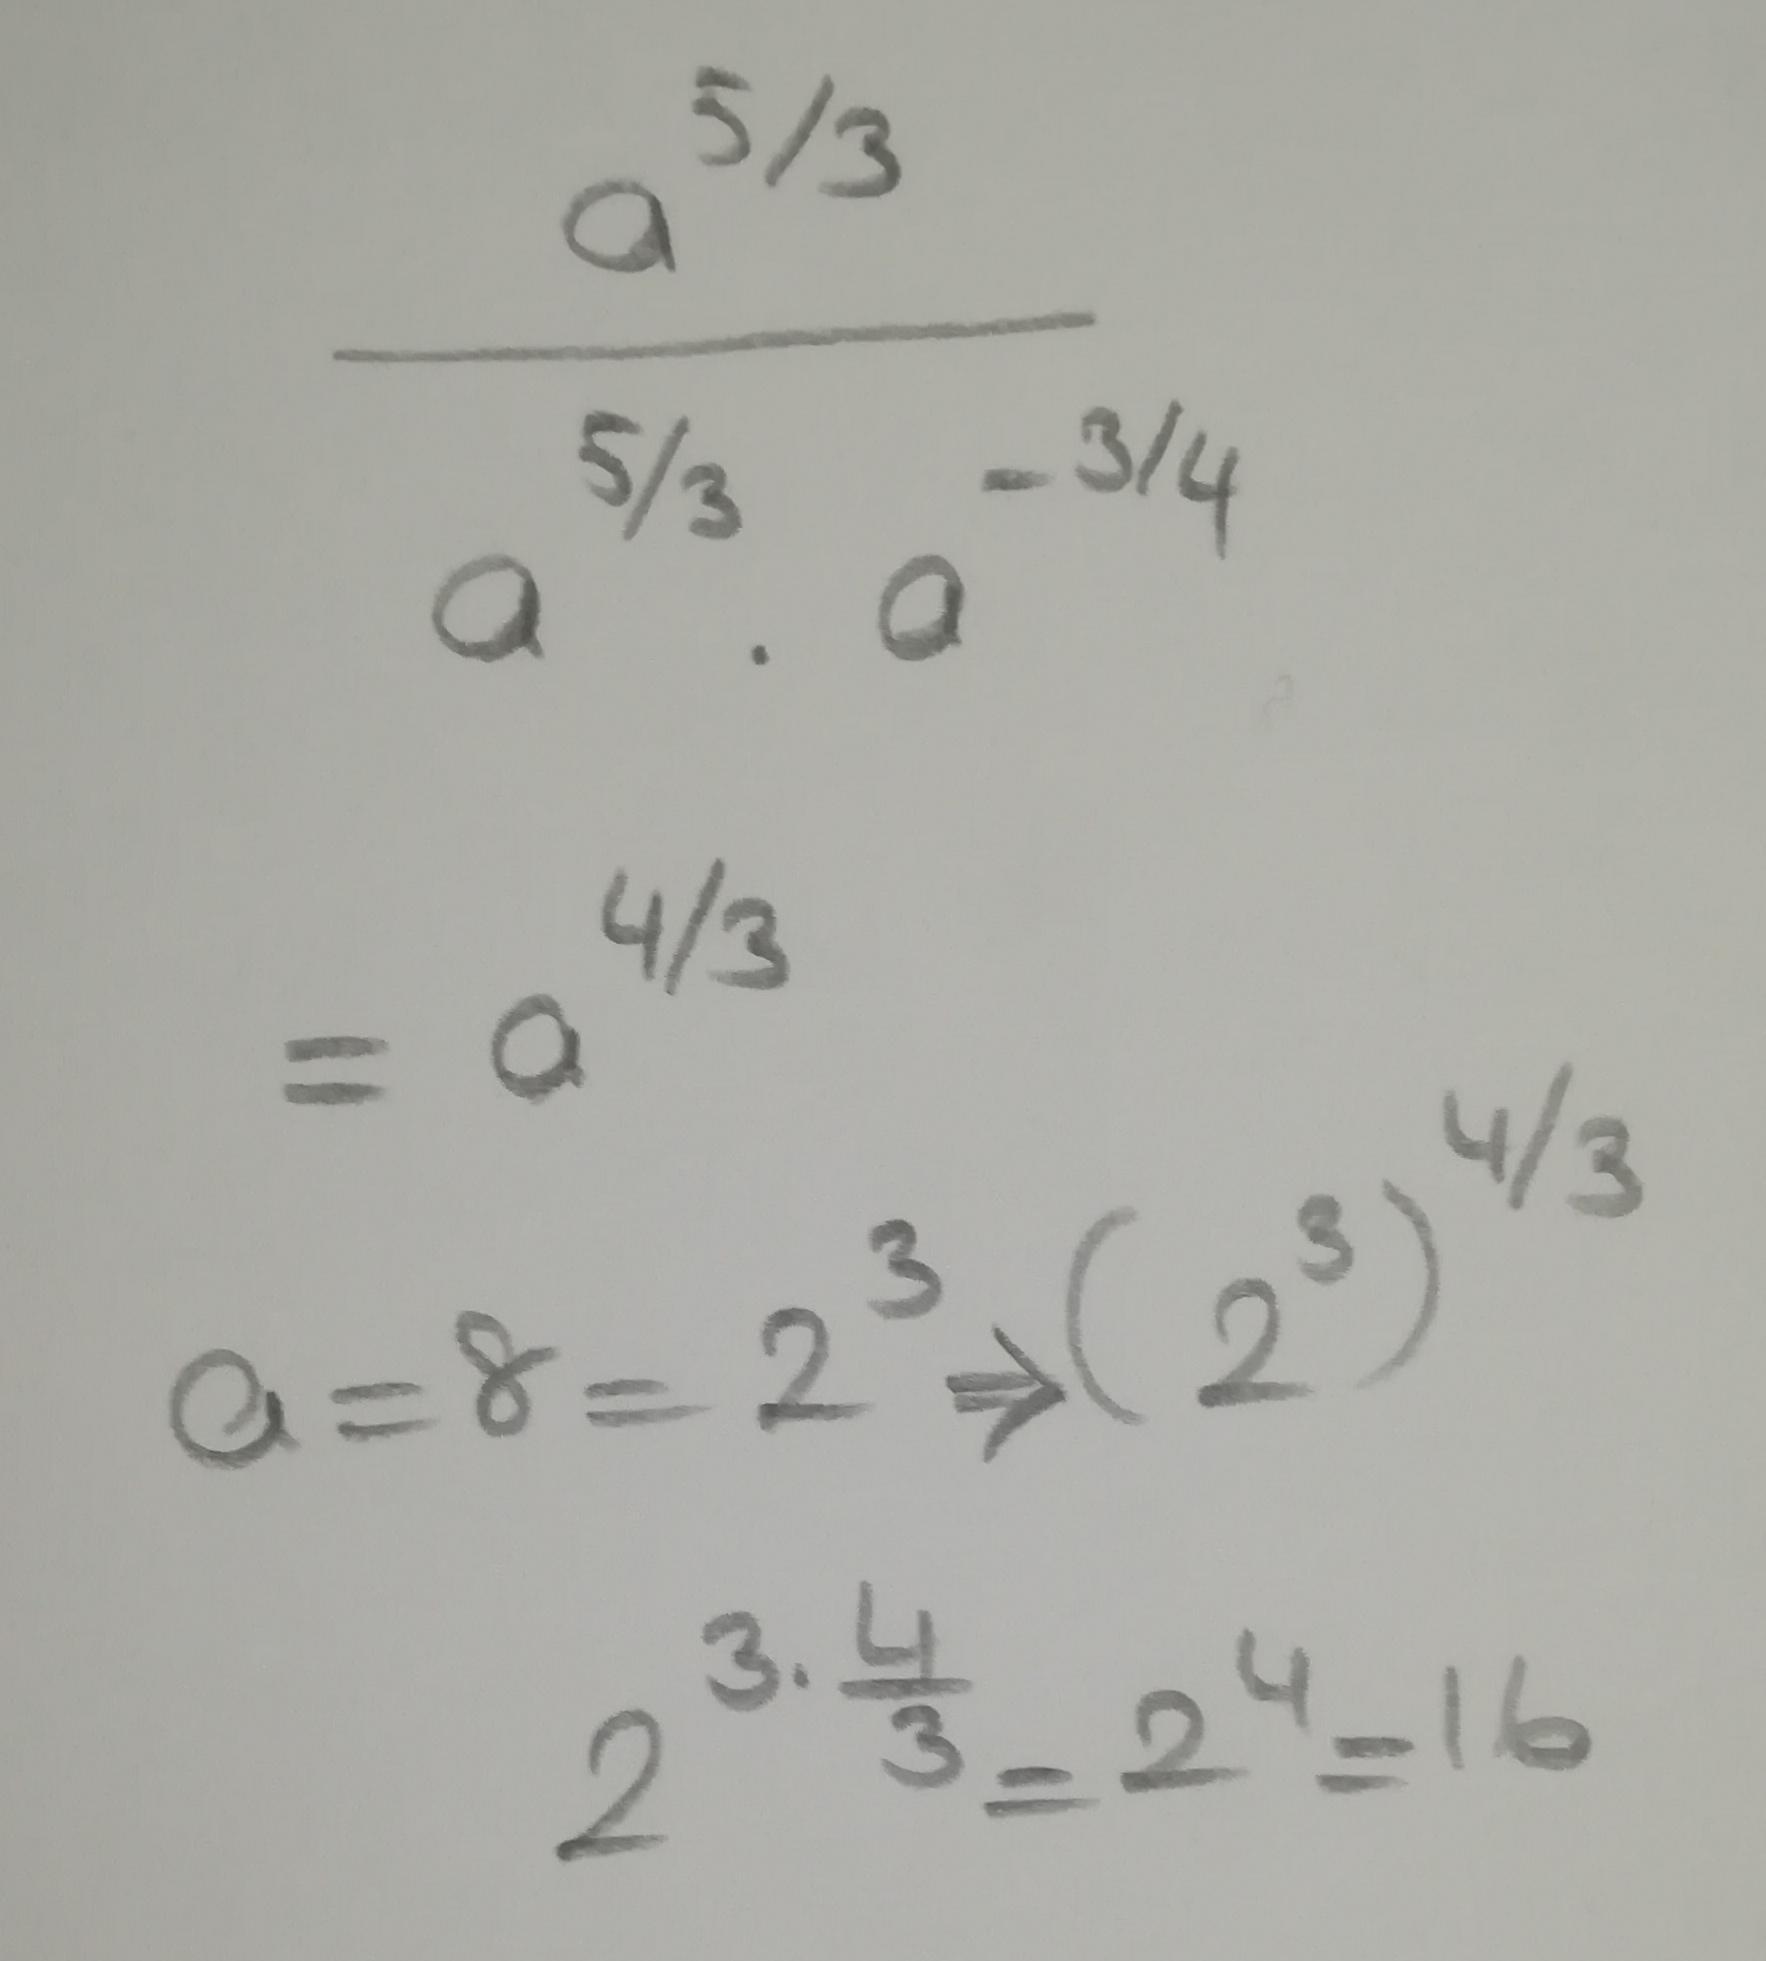 a^5/3
a^5/3 . a^-3/4
= a^4/3
a = 8 = 2^3 ⇒ (2^3)^4/3
2^3·4/3 = 2^4 = 16